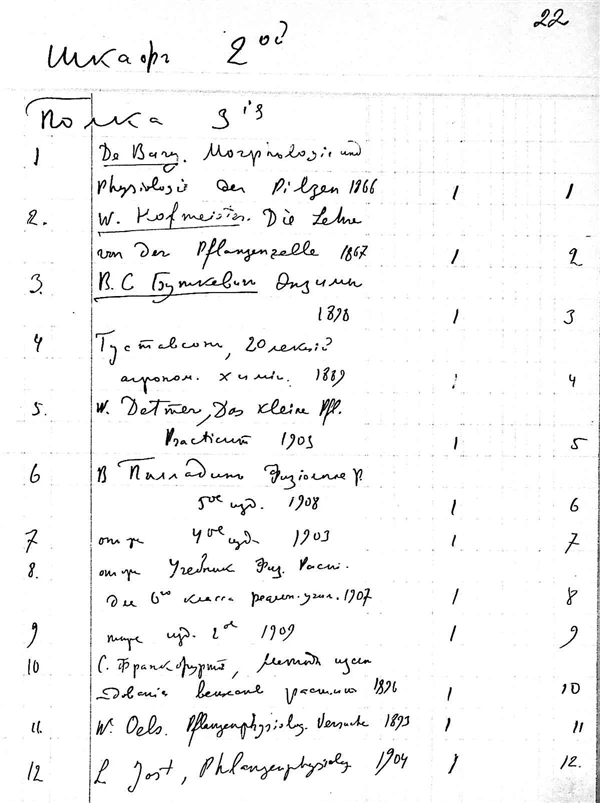 22
Шкафъ 2ой
Полка 3ья
1 De Bary. Morphologie und
Physiologie der Pilzen 1866 1 1
2. W. Hofmeister. Die Lehre
von der Pflanzenzelle 1867 1 2
3. В. С Буткевичъ Энзимы
1898 1 3
4 Густавсонъ, 20 лекцій
агроном. химіи. 1889 1 4
5. W. Detmer, Das kleine Pfl.
Practicum 1903 1 5
6 В Палладинъ Физіологія Р.
5ое изд. 1908 1 6
7 4ое изд. 1903 1 7
8. Учебник Физ. Раст.
для 6го класса реальн. учил. 1907 1 8
9 тоже изд. 2ое 1909 1 9
10 С. Франкфуртъ, Методы изсл
ѣдованія растит 1896 1 10
11. W. Oels. Pflanzenphysiolog. Versuche 1893 1 11
12 L Jost, Phlanzenphysiolog 1904 1 12.